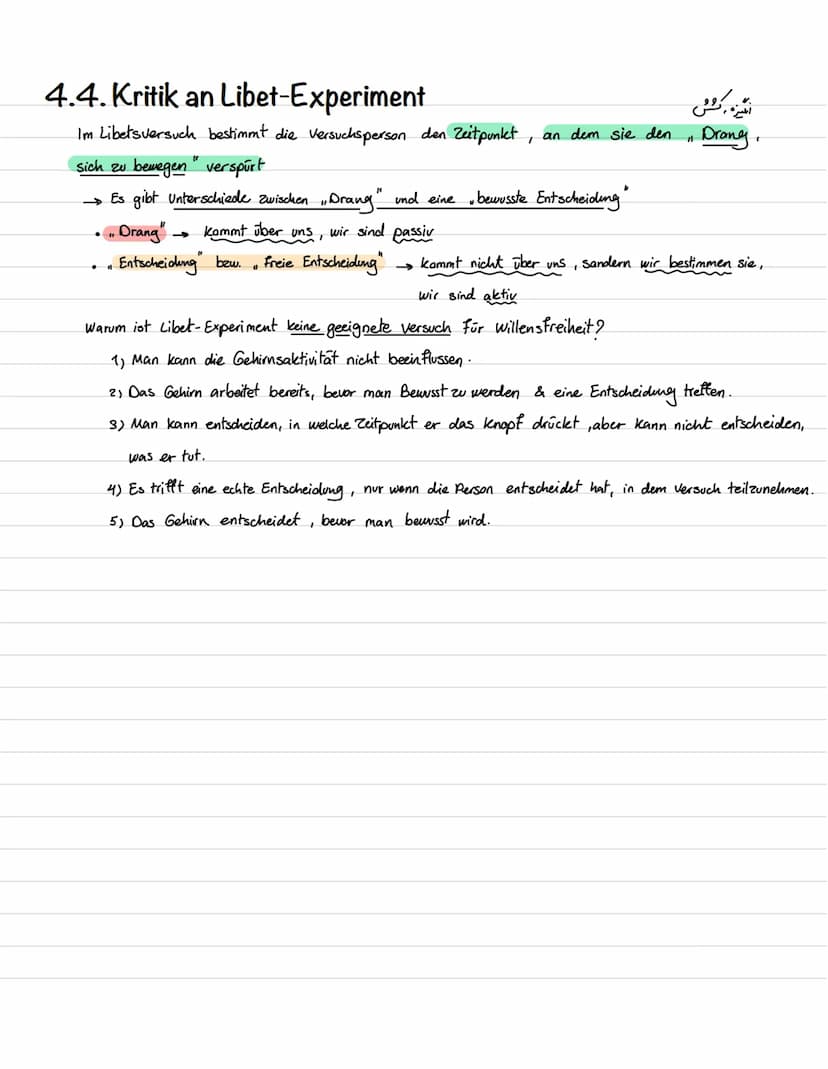 4.4. Kritik an Libet-Experiment
انگیزه، کشش
Im Libetsversuch bestimmt die Versuchsperson den Zeitpunkt, an dem sie den „Drang,
sich zu bewegen" verspürt
→ Es gibt Unterschiede zwischen „Drang" und eine „bewusste Entscheidung"
• „Drang" → kommt über uns, wir sind passiv
• „Entscheidung" bzw. „freie Entscheidung" → kommt nicht über uns, sondern wir bestimmen sie,
wir sind aktiv
Warum ist Libet-Experiment keine geeignete Versuch für Willensfreiheit?
1) Man kann die Gehirnsaktivität nicht beeinflussen.
2) Das Gehirn arbeitet bereits, bevor man Bewusst zu werden & eine Entscheidung treffen.
3) Man kann entscheiden, in welche Zeitpunkt er das Knopf drückt, aber kann nicht entscheiden,
was er tut.
4) Es trifft eine echte Entscheidung, nur wenn die Person entscheidet hat, in dem Versuch teilzunehmen.
5) Das Gehirn entscheidet, bevor man bewusst wird.